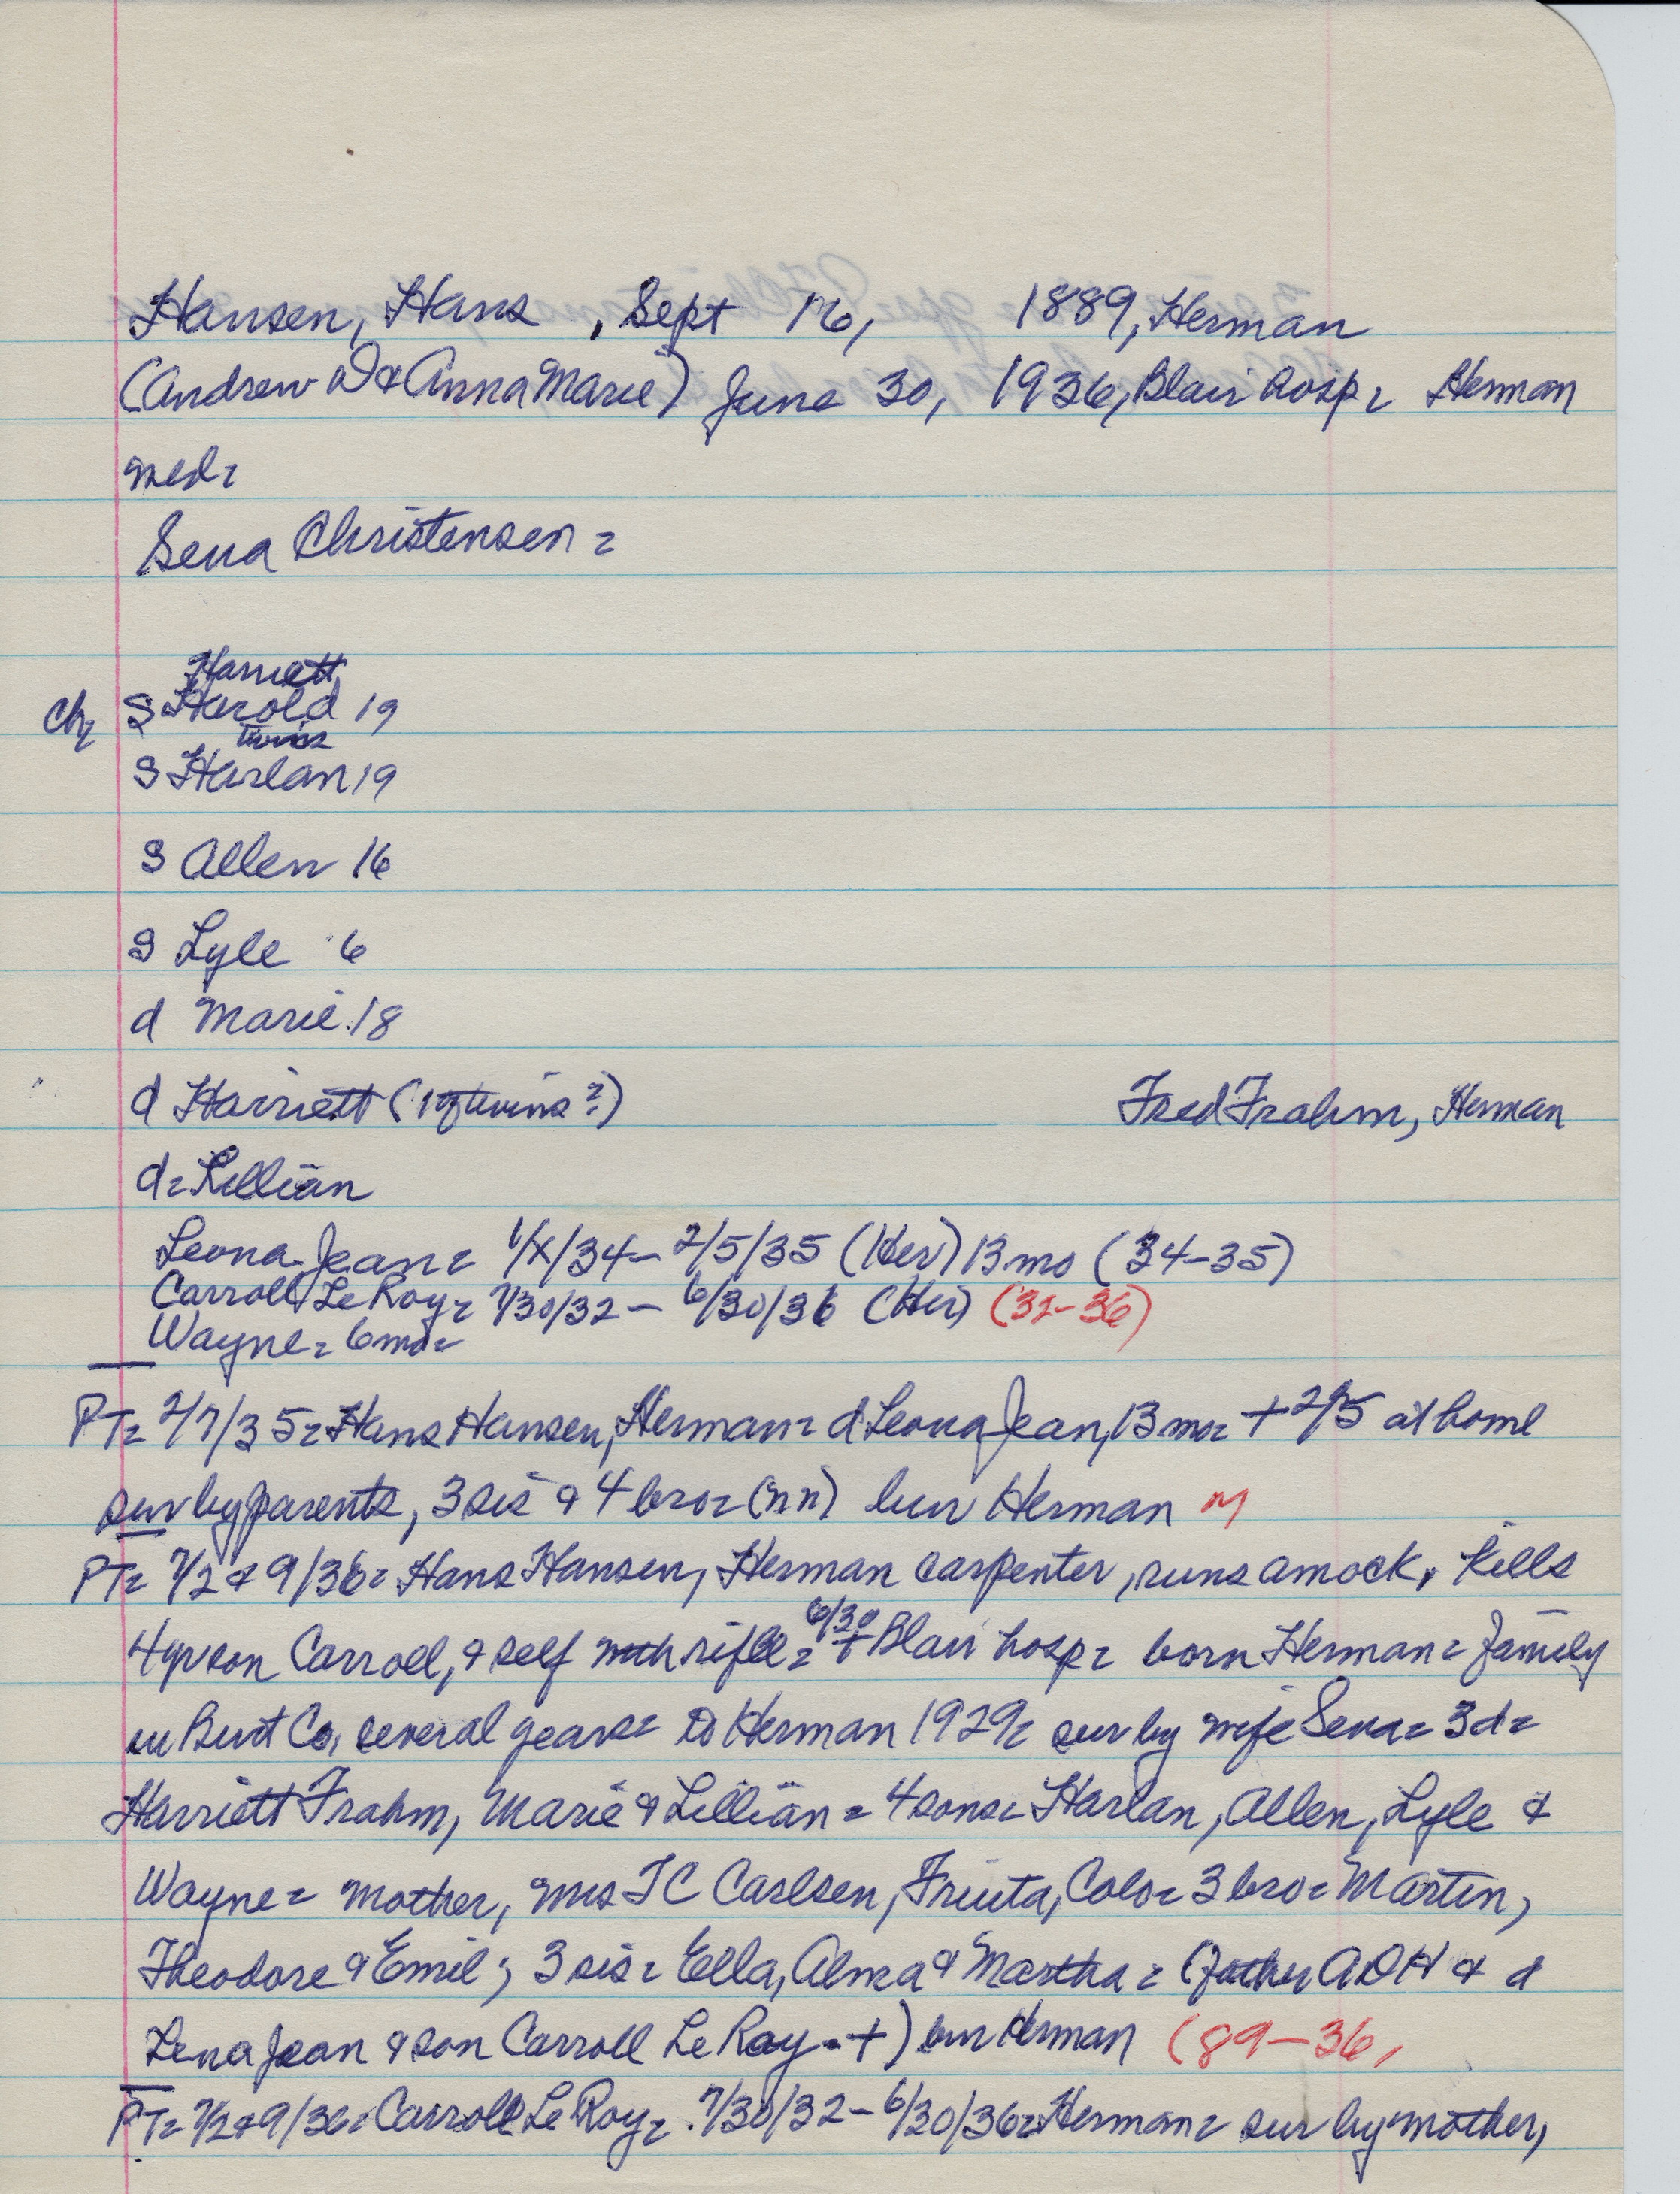 Hansen, Hans , Sept 16, 1889, Herman
(Andrew D & Anna Marie) June 30, 1936, Blair hosp = Herman
med=
Sena Christensen =
Harriett
Ch= S Harold 19
twins
S Harlan 19
S Allen 16
S Lyle 6
d Marie 18
d Harriett (1 of twins?) Fred Frahm, Herman
d= Lillian
Leona Jean = 1/X/34 - 2/5/35 (Her) 13 mo (34-35)
Carroll LeRoy = 7/30/32 - 6/30/36 (Her) (32-36)
Wayne = 6 mo=
PT= 2/7/35 = Hans Hansen, Herman = d Leona Jean, 13 mo= + 2/5 at home
sur by parents, 3 sis & 4 bro = (nn) bur Herman M
PT= 7/2 & 9/36 = Hans Hansen, Herman carpenter, runs amock, kills
4 yr son Carroll, & self with rifle = 6/30 + Blair hosp = born Herman = family
in Burt Co, several years = to Herman 1929 = sur by wife Sena = 3 d =
Harriett Frahm, Marie & Lillian = 4 sons = Harlan, Allen, Lyle &
Wayne = mother, Mrs T C Carlsen, Friuta, Colo = 3 bro = Martin,
Theodore & Emil; 3 sis = Ella, Alma & Martha = (father A D H & d
Lena Jean & son Carroll Le Roy = +) bur Herman (89-36,
PT= 7/2 & 9/36 = Carroll Le Roy = 7/30/32 - 6/30/36 = Herman = sur by mother,